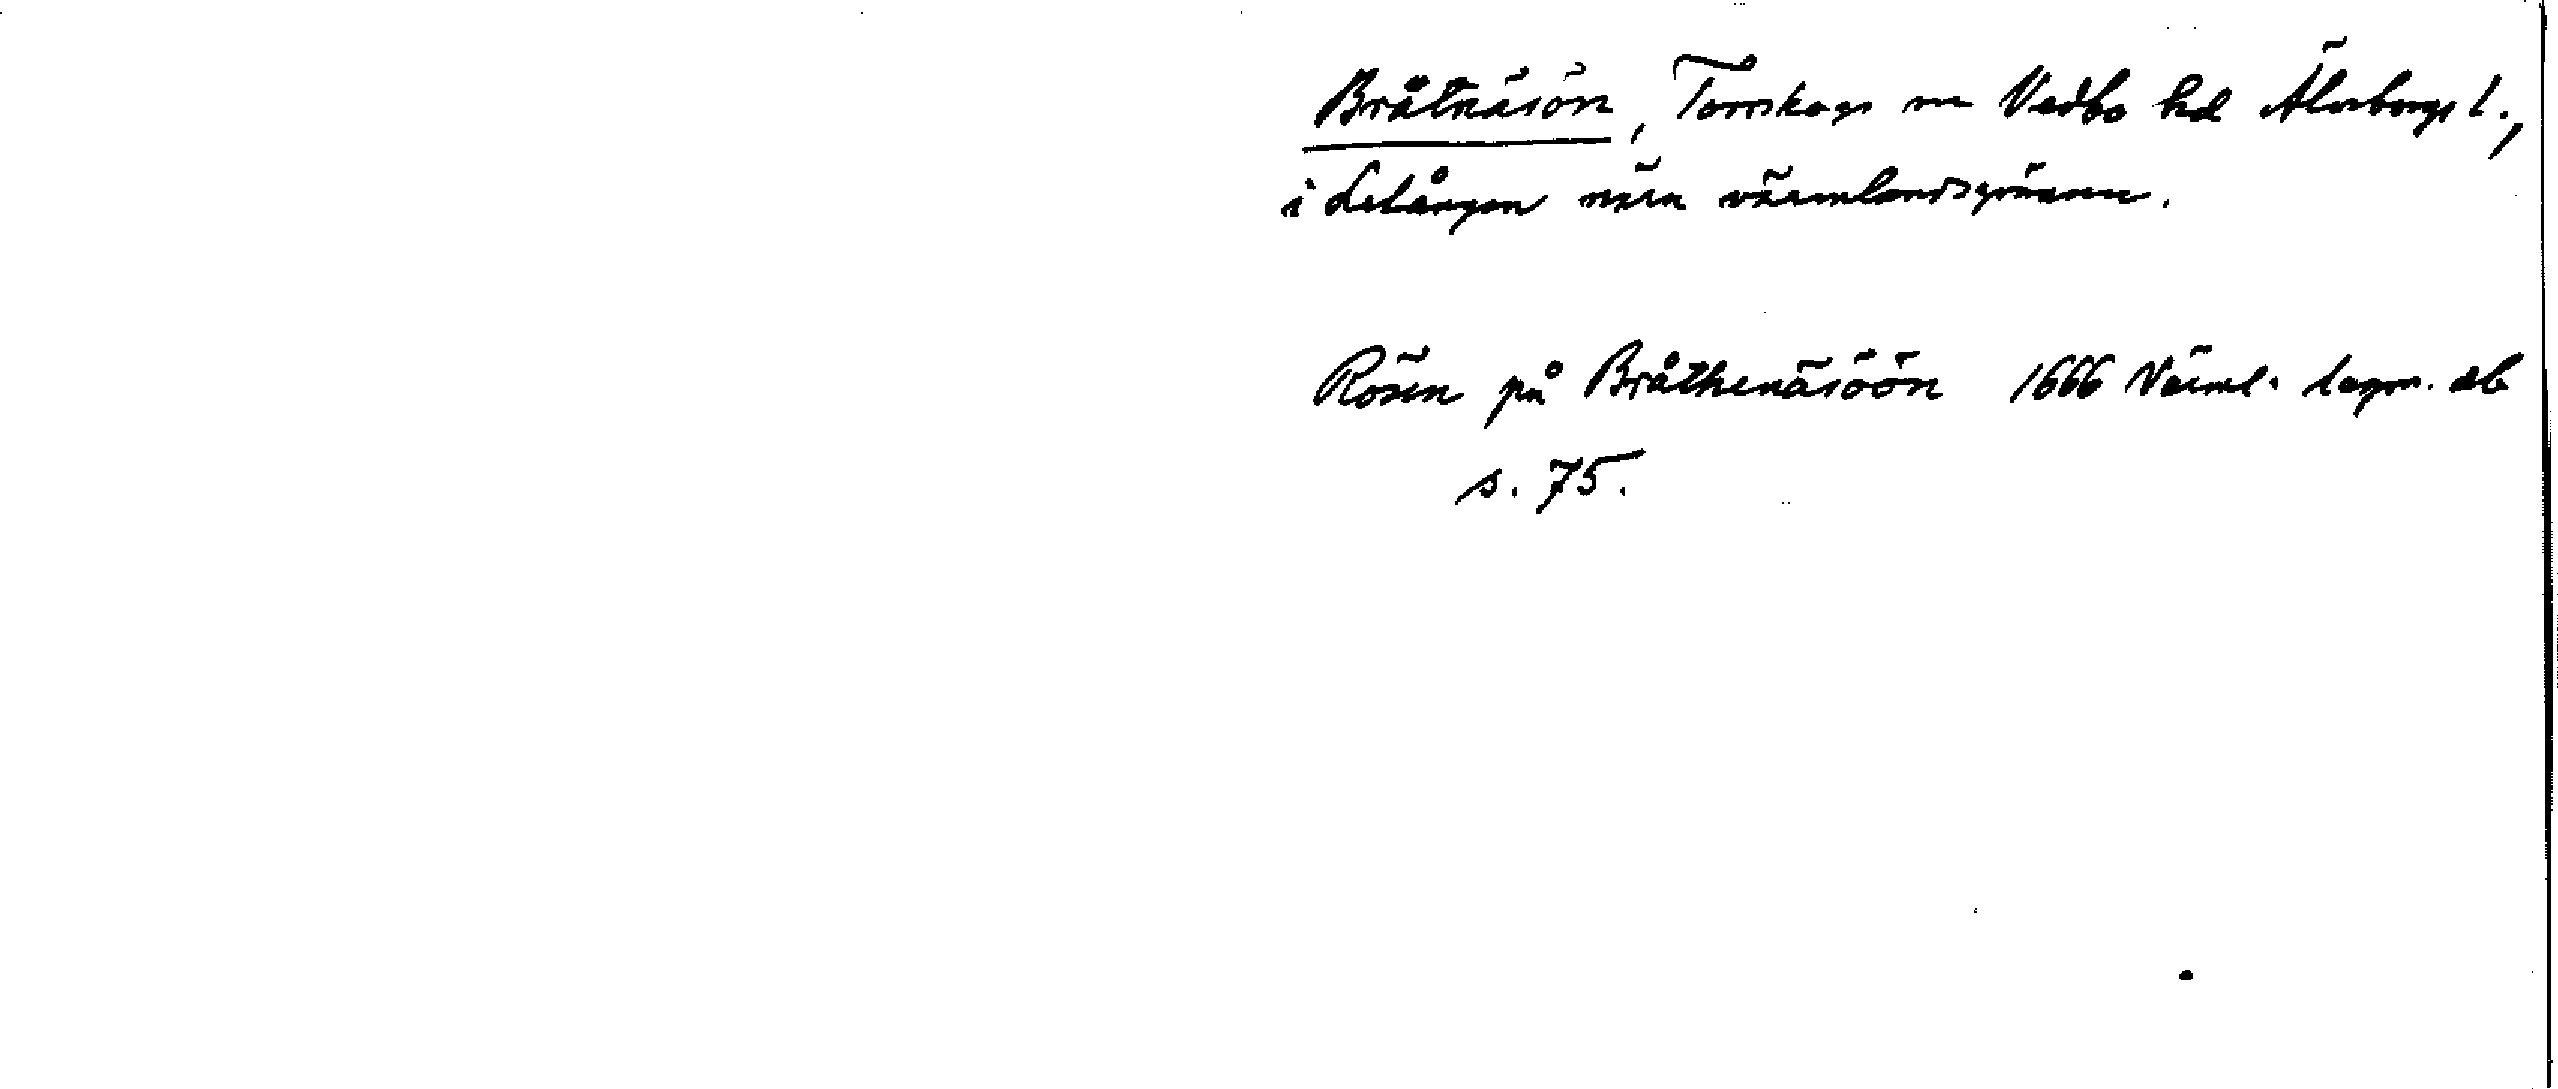 Bråtnäsön, Torrskogs sn Vedbo hd Älvsborgs l.,
i Lelången nära värmlandsgränsen.
Rösen på Bråthenäsöön 1666 Värml. lagm. db
s. 75.